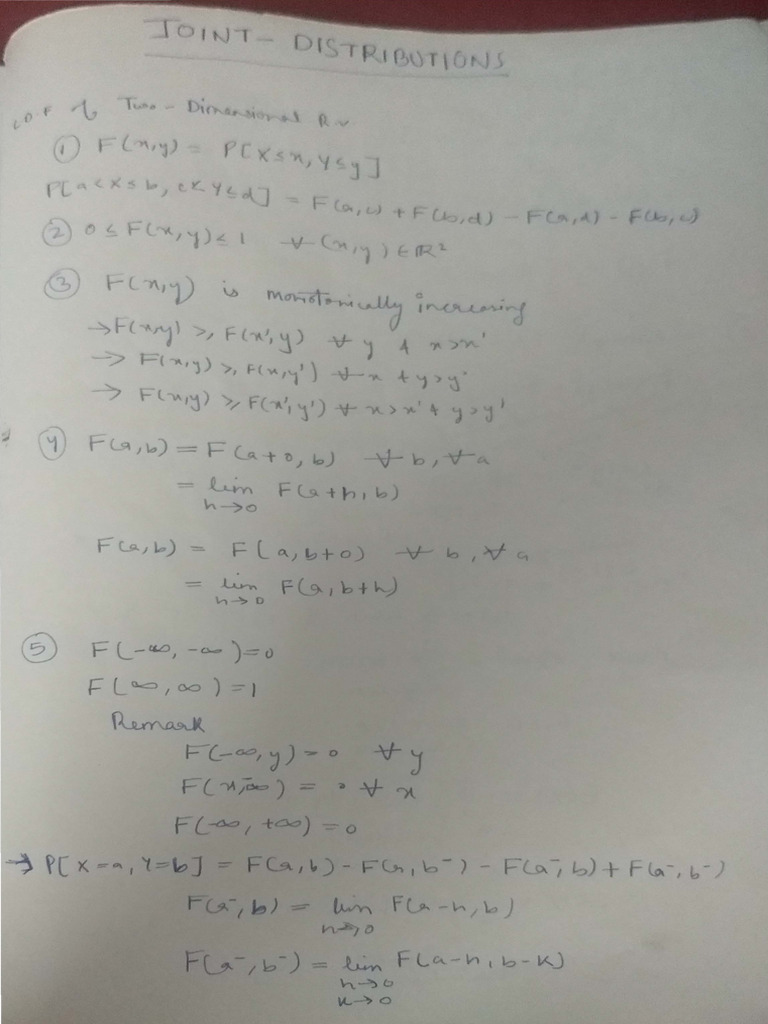 JOINT - DISTRIBUTIONS
C.D.F of Two - Dimensional R.v
① F(x,y) = P[X≤x, Y≤y]
P[a<X≤b, c<Y≤d] = F(a,c) + F(b,d) - F(a,d) - F(b,c)
② 0 ≤ F(x,y) ≤ 1 ∀ (x,y) ∈ ℝ²
③ F(x,y) is monotonically increasing
→ F(x,y) ≥ F(x',y) ∀ y & x>x'
→ F(x,y) ≥ F(x,y') ∀ x & y>y'
→ F(x,y) ≥ F(x',y') ∀ x>x' & y>y'
④ F(a,b) = F(a+0,b) ∀ b, ∀ a
= lim F(a+h,b)
h→0
F(a,b) = F(a,b+0) ∀ b, ∀ a
= lim F(a,b+h)
h→0
⑤ F(-∞,-∞)=0
F(∞,∞)=1
Remark
F(-∞,y) = 0 ∀ y
F(x,-∞) = 0 ∀ x
F(-∞,+∞) = 0
→ P[X=a, Y=b] = F(a,b) - F(a,b⁻) - F(a⁻,b) + F(a⁻,b⁻)
F(a⁻,b) = lim F(a-h,b)
h→0
F(a⁻,b⁻) = lim F(a-h,b-k)
h→0
k→0